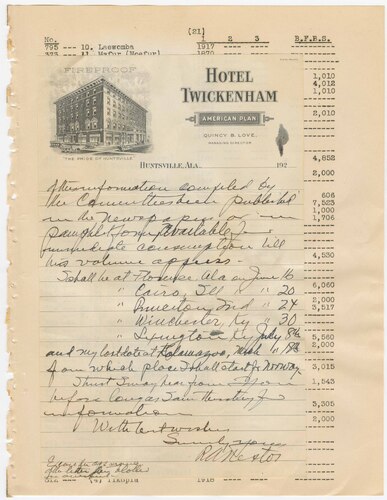 [21]
No. 1 2 3 B.F.B.S.
795 --- 10. Laewomba 1917
1870
FIREPROOF
HOTEL
TWICKENHAM
AMERICAN PLAN
QUINCY B. LOVE,
MANAGING DIRECTOR
"THE PRIDE OF HUNTSVILLE"
HUNTSVILLE, ALA. 192
1,010
4,012
1,010
2,010
4,852
2,000
606
7,523
1,000
1,706
4,530
6,060
2,000
3,517
5,560
2,000
3,015
1,543
3,305
2,000
of the information compiled by
the Committee been published
in the newspaper or in
pamphlet form available for
immediate consumption till
his volume appears.
I shall be at Florence Ala on June 16
" Cairo, Ill " 20
" Princeton Ind " 24
" Winchester Ky " 30
" Lexington Ky July 8th
and my last date at Kalamazoo, Mich " 18th
from which place I shall start for Norway
I trust I may hear from you
before long as I am
information
With best wishes
Sincerely yours
of the letter
(4) Tikopia 1916